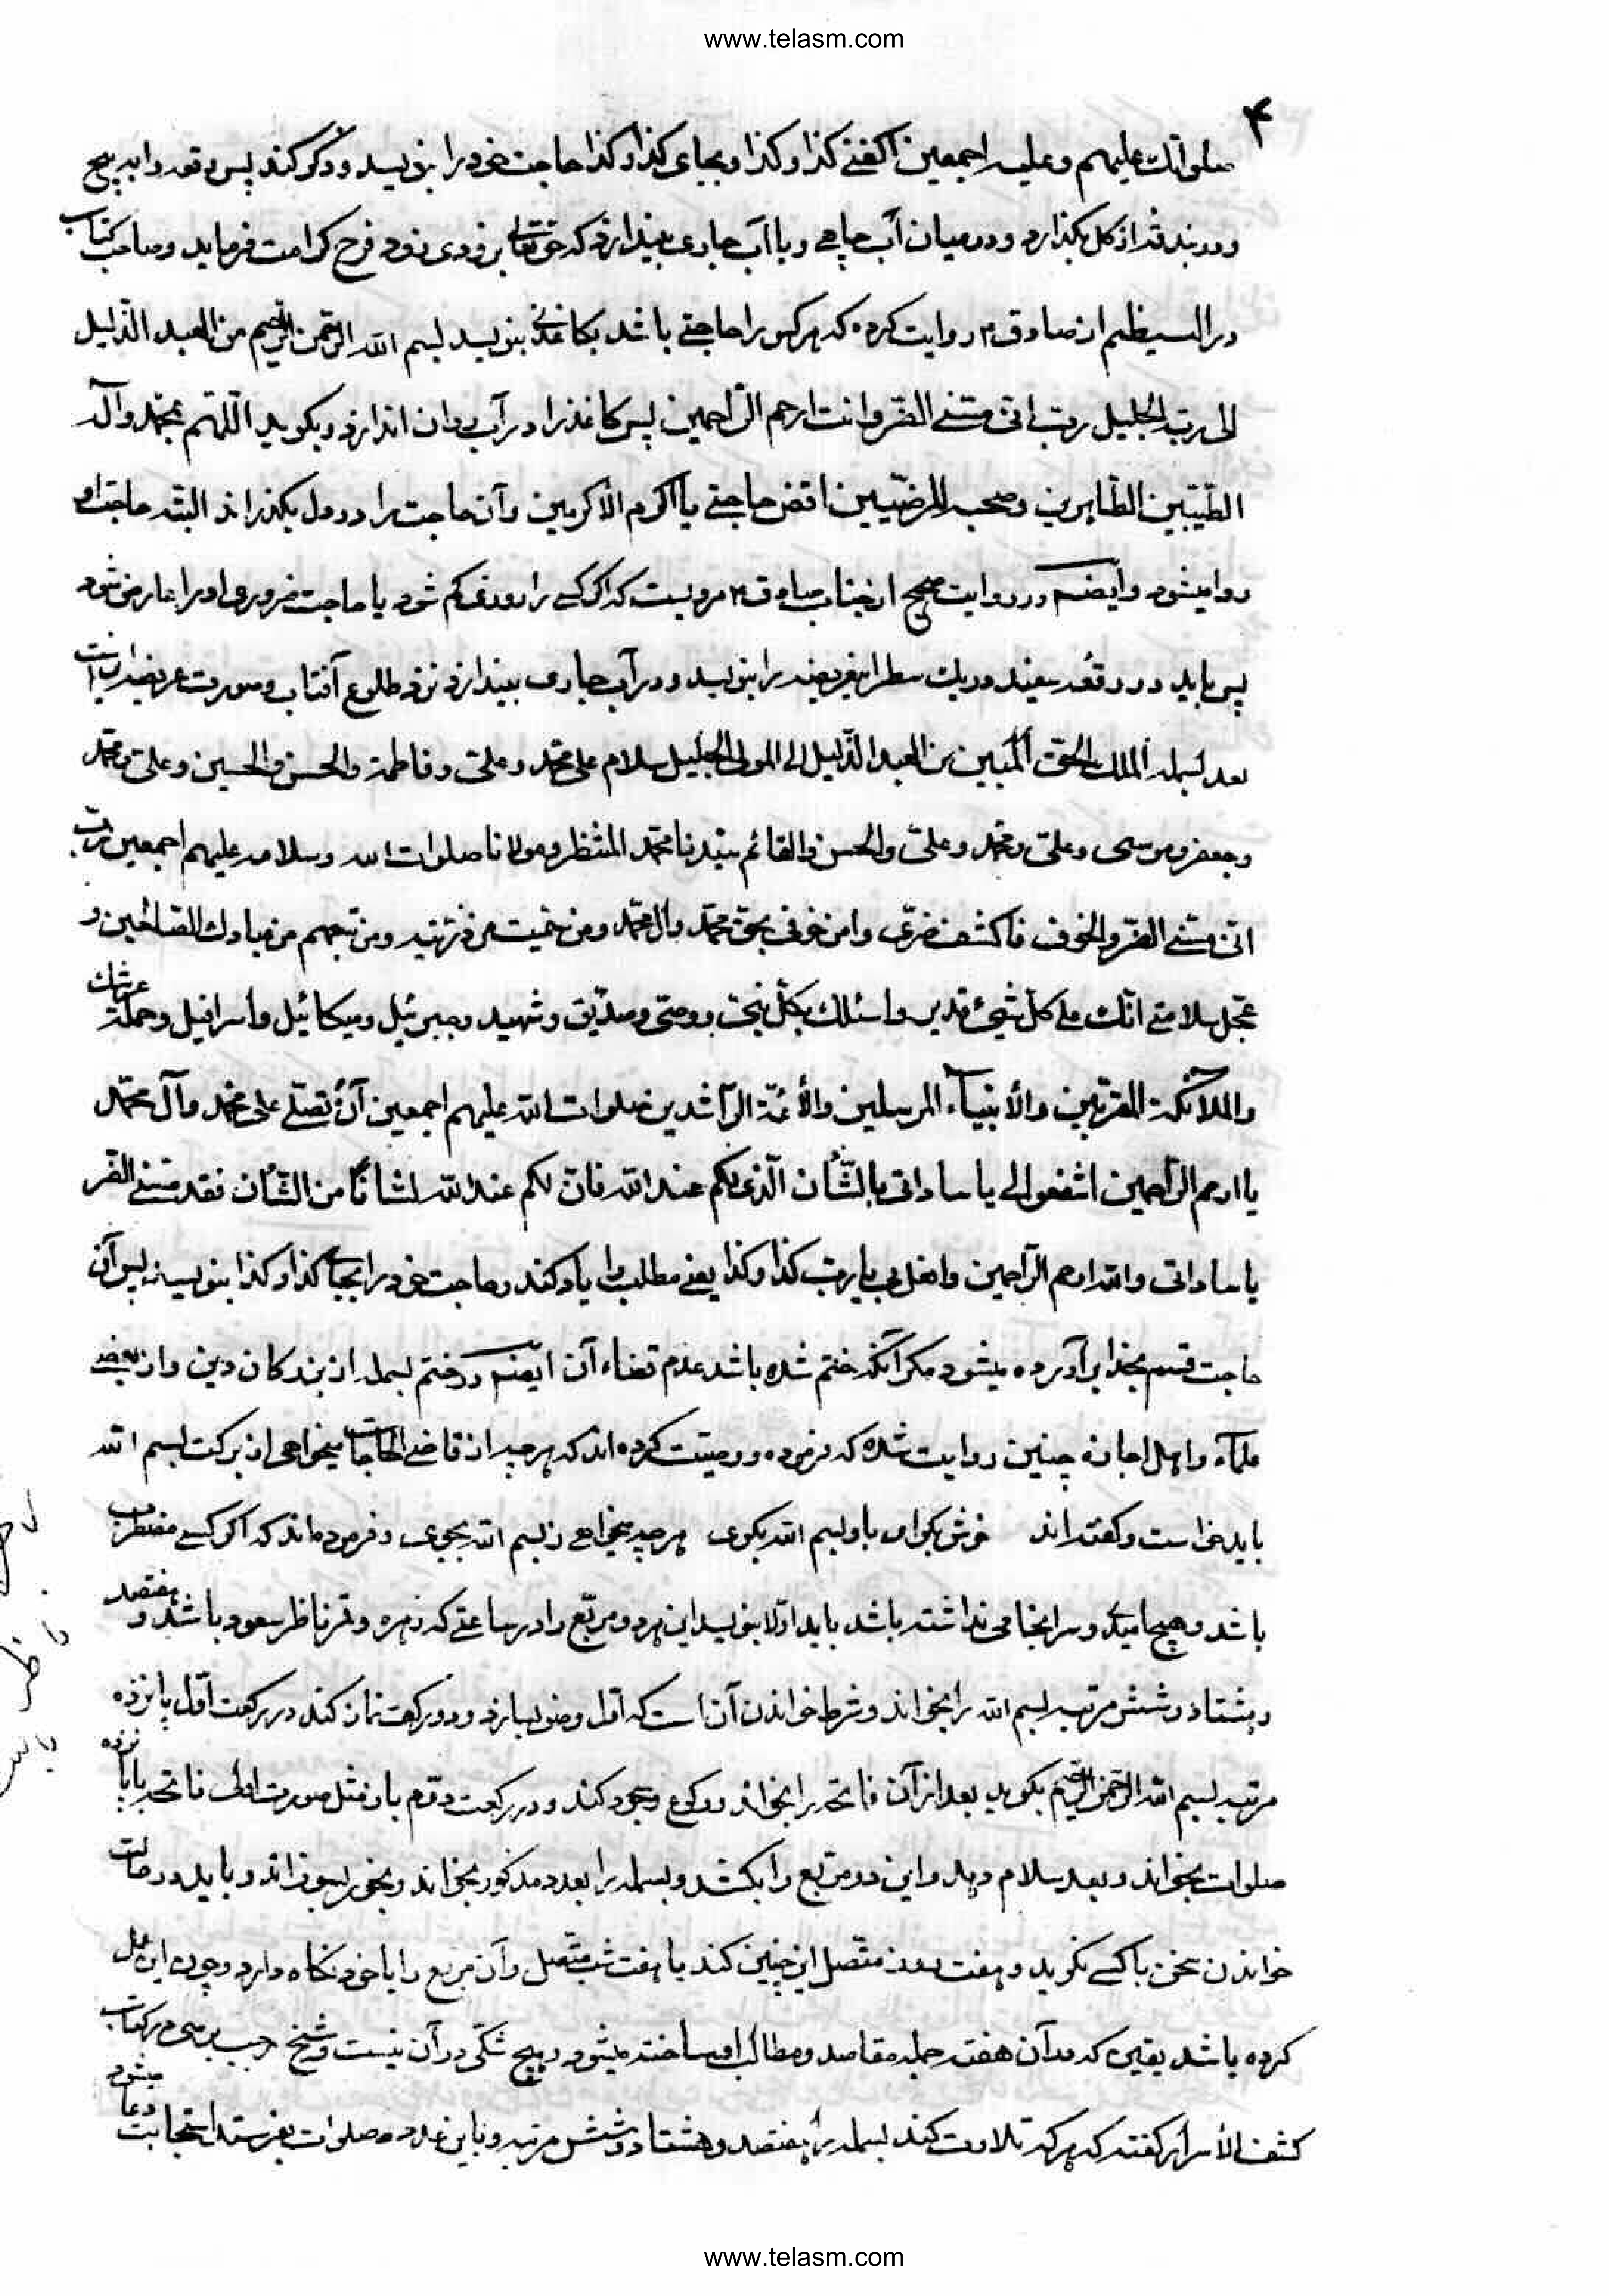 www.telasm.com
۴
صلواتك علیهم و علیه اجمعین اکفنی کذا و کذا و بجای کذا و کذا حاجت خود را بنویسد و ذکر کند پس رقعه را به پیچ
و در بندقه از کل بکذارد و در میان آب چاهی و یا آب جاری بیندازد که حقتعالی بزودی زود فرج کرامت فرماید و صاحب کتاب
در السیظیم از صادق ۴ روایت کرده که هرکس را حاجتی باشد بکاغذی بنویسد بسم الله الرحمن الرحیم من العبد الذلیل
الی رب الجلیل رب انی مسنی الضر و انت ارحم الراحمین پس کاغذ را در آب روان اندازد و بکوید اللهم بمحمد و آله
الطیبین الطاهرین و صحبه المرضیین اقض حاجتی یا اکرم الاکرمین و آن حاجت را در دل بکذراند البته حاجت او
روا میشود و ایضم در روایت صحیح از جناب صادق ۴ مرویست که اکر کسی را روزی کم شود یا حاجت ضروری او را عارض شود
پس باید در رقعه سفید در یك سطر این عریضه را بنویسد و در آب جاری بیندازد نزد طلوع آفتاب و صورت عریضه اینست
بعد بسمله الملك الحق المبین من العبد الذلیل الی المولی الجلیل سلام علی محمد و علی و فاطمة و الحسن و الحسین و علی و محمد
و جعفر و موسی و علی و محمد و علی و الحسن و القائم سیدنا محمد المنتظر و مولانا صلوات الله و سلامه علیهم اجمعین رب
انی مسنی الضر و الخوف فاکشف ضری و امن خوفی بحق محمد و آل محمد و من عباد ك الصالحین و
عجل سلامتی انك علی کل شیئ قدیر و اسئلك بکل نبی و وصی و صدیق و شهید و جبرئیل و میکائیل و اسرافیل و حملة عرشك
و الملائکة المقربین و الأنبیاء المرسلین و الأئمة الراشدین صلوات الله علیهم اجمعین أن تصلی علی محمد و آل محمد
یا ارحم الراحمین اشفعوا لی یا ساداتی بالشأن الذی لکم عند الله فان لکم عند الله لشانا من الشأن فقد مسنی الضر
یا ساداتی و الله ارحم الراحمین و افعل بی یا رب کذا و کذا یعنی مطلب را یاد کند و حاجت خود را بجای کذا و کذا بنویسد پس آن
حاجت قسم بخدا برآورده میشود مکر آنکه ختم شده باشد عدم قضاء آن ایضم در ختم بسمله از بندکان دین و از بعضی
علماء و اهل اجازه چنین روایت شده که فرموده و وصیت کرده اند که هرچه از قاضی الحاجات میخواهی از برکت بسم الله
باید خواست و کفته اند خوش بکو بسم الله بکوی هرچه میخواهی ز بسم الله بجوی و فرموده اند که اکر کسی مضطرب
باشد و هیچ امید و سرانجامی نداشته باشد باید اولا بنویسد این هر دو مربع را در ساعتی که زهره و قمر ناظر سعود باشد و هفتصد
و هشتاد و شش مرتبه بسم الله را بخواند و شرط خواندن آن است که اول وضو بسازد و دو رکعت نماز کند در رکعت اول پانزده
مرتبه بسم الله الرحمن الرحیم بکوید بعد از آن فاتحه را بخواند و رکوع و سجود کند و در رکعت دوم باز مثل صورت اولی فاتحه را با پانزده
صلوات بخواند و بعد سلام دهد و این دو مربع را بکشد و بسمله را بعدد مذکور بخواند و بخور بسوزاند و باید در حالت
خواندن سخن با کسی نکوید و هفت روز متصل این چنین کند یا هفت شب متصل و آن مربع را با خود نکاه دارد و چون این عمل
کرده باشد یقین که در آن هفته جمله مقاصد و مطالب او ساخته میشود و هیچ شکی در آن نیست و شیخ رجب برسی در کتاب
کشف الأسرار کفته که هرکه تلاوت کند بسمله را هفتصد و هشتاد و شش مرتبه و باین عدد صلوات بفرستد استجابت دعا میشود
www.telasm.com